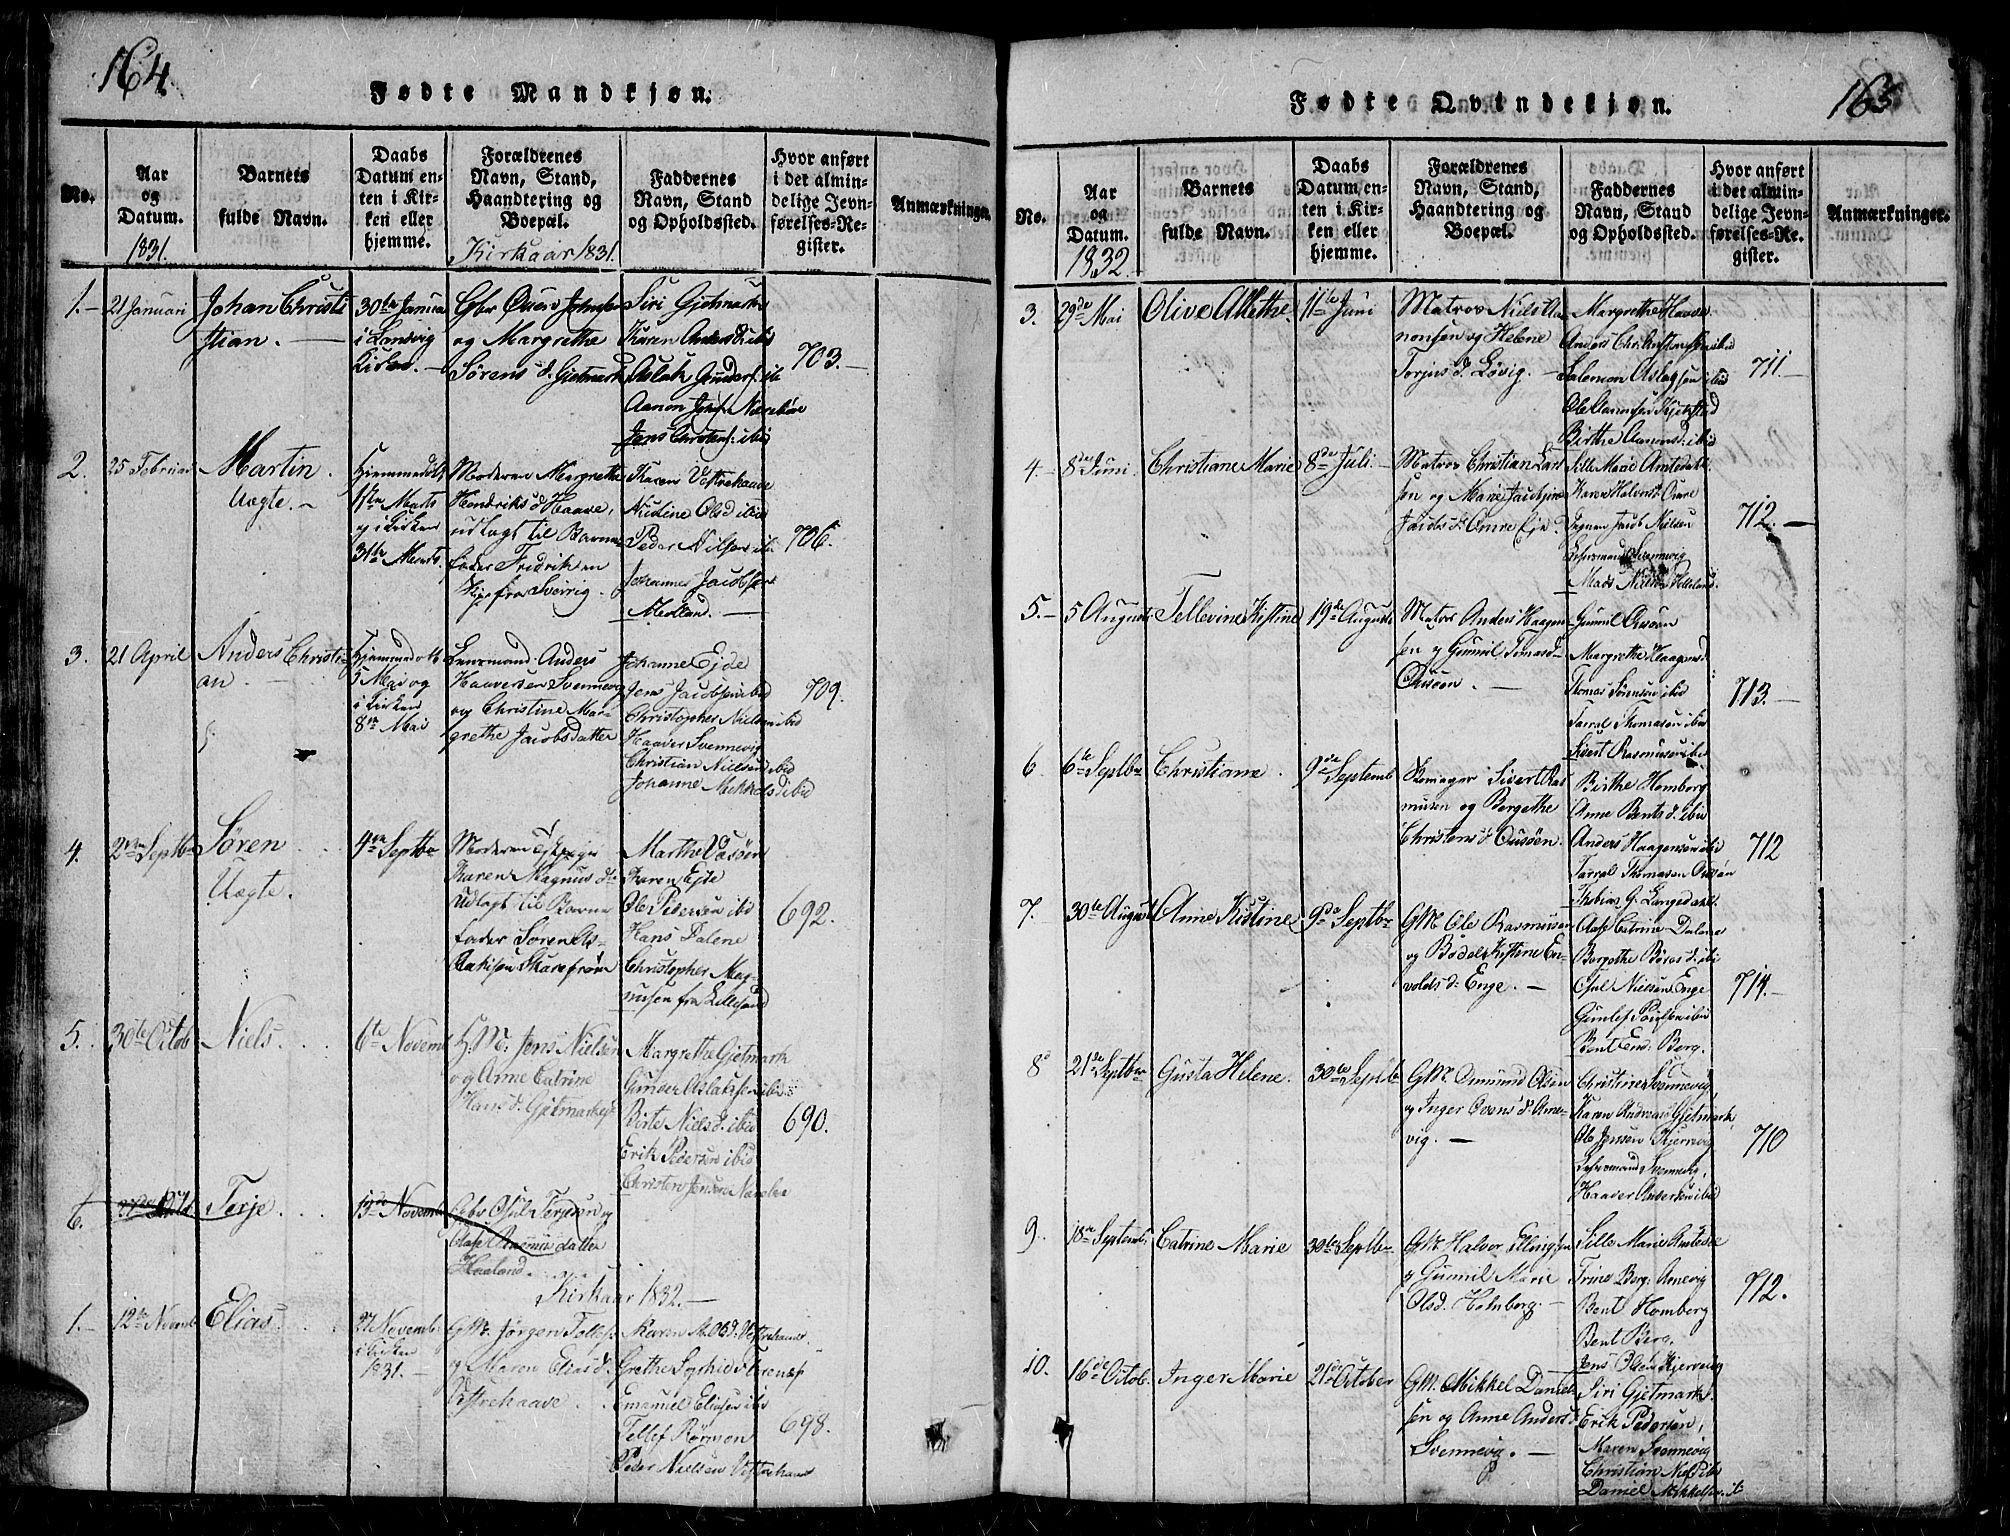 164.
Fødte Mandkjøn.
No.
Aar
og
Datum.
1831.
Barnets
fulde Navn.
Daabs
Datum en-
ten i Kir-
ken eller
hjemme.
Forældrenes
Navn, Stand,
Haandtering og
Boepæl.
Kirkaar 1831.
Faddernes
Navn, Stand
og Opholdssted.
Hvor anført
i det almin-
delige Jevn-
førelses-Re-
gister.
Anmærkninger.
1.-
21 Januari
Johan Christi
tian.
30te Janua
i Landvig
Kirke.
og Margrethe
Sørens d. Gjetmark
Siri Gjetmark
Karen Anders d ibid
Aslak Gunders. ib
Aanon
Jens Christens: ibid
703.
2.
25 Februar
Martin.
Uægte.
Hjemmedøbt
1ste Marts
og i Kirken
31te Marts
Moderen Margrethe
Hendriks d Haave,
udlagt til Barne
fader Fridrik en
fra Sverrig.
Karen Vestrehaave
Nicoline Olsd ibid
Peder Nilsen ib
Johannes Jacobsen
Molland.
706.
3.
21 April
Anders Christi-
an.
Hjemmedøbt
5 Mai og
i Kirken
8de Mai
Lensmand Anders
Haaversen Svennevig
og Christine Mar-
grethe Jacobsdatter
Johanne Ejde
Jens Jacobsen ibid
Christopher Nielsen ibid
Haaver Svennevig
Christian Nielsen ibid
Johanne Mikkels d ibid
709.
4.
2den Septbr
Søren
Uægte.
4de Septbr
Moderen
Karen Magnus d
udlagt til Barne
fader Søren As-
Marthe Vasøen
Karen Ejde
Ole Pedersen ibid
Hans Dalene
Christopher Mag-
nusen fra Lillesand
692.
5.
30te Octob
Niels.
6te Novemb
G. M. Jens Nielsen
og Anne Catrine
Hans d. Gjetmark
Margrethe Gjetmark
Gunder Aslaksen ibid
Birte Niels d. ibid
Erik Pedersen ibid
Christen Jensen
690.
6.
Terje.
13de Novemb
Osul Terjesen og
Olafe Rasmus datter
Haaland.
Kirkaar 1832.
1.-
12te Novemb
Elias.
27 Novemb.
i Kirken
1831.
GM. Jørgen Tollefs
og Maren Elias d.
Vestrehaave.
Karen M. Olsd. Vestrehaave
Grethe Sophie
Emanuel Eliasen ibid
Tellef Rørmon
Peder Nielsen Vestrehaave
698.
163
Fødte Qvindekjøn.
No.
Aar
og
Datum.
1832
Barnets
fulde Navn.
Daabs
Datum en-
ten i Kir-
ken eller
hjemme.
Forældrenes
Navn, Stand,
Haandtering og
Boepæl.
Faddernes
Navn, Stand
og Opholdssted.
Hvor anført
i det almin-
delige Jevn-
førelses-Re-
gister.
Anmærkninger.
3.
29de Mai
Olive Alethe.
11te Juni
Matros Niels Aa
nonsen og Helene
Torjus d. Løvig.
Margrethe Haave
Anders Chr. ibid
Salomon Aslagsen ibid
Ole Aanonsen
Birthe Aanons d: ibid
711.
4.
8de Juni
Christiane Marie
8de Juli
Matros Christian Lars
sen og Marie
Jacobs d. Omre Eje
Sille Marie Amtedahl
Karen Halvors d. Omre
Jacob Nielsen
Lehnsmand Svennevig
Mads Nielsen
712.
5.
5 August
Tellevine Kistine
19de August
Matros Anders Haagen
sen og Gunnil Tomas d
Ousøen
Gunnil Ousøen
Margrethe Haagens d
Thomas Sørensen ibid
Tarral Thomasen ibid
Sivert Rasmusen ibid
713.
6
6te Septbr
Christiane.
9de Septemb
Skomager Sivert Ras
musen og Bergethe
Christens d Ousøen.
Birthe Homborg
Anne Bents d. ibid
Anders Haagensen ibid
Tarral Thomasen Ousøn
Thobias G. Langedahl.
712
7.
30te August
Anne Kistine
9de Septbr
GM Ole Rasmusen
og Bodel Kistine En-
volds d: Enge.
Olafe Catrine Dalene
Bergethe Børas d: ibi
Osul Nielsen Enge
Gunlef Poulsen ibid
Bent End: Berg.
714.
8
21de Septbr
Gusta Helene.
30te Septb
GM. Omund Olsen
og Inger Ovens d. Ame-
vig.
Christine Svennevig,
Karen Andreas d Gjetmark,
Ole Jensen Kjerrevig
Lehnsmand Svennevig,
Haaver Andersen ibid
710
9.
18de Septemb.
Catrine Marie
30te Septbr
GM Halvor Ellingsen
og Gunnil Marie
Olsd. Homborg.
Sille Marie Amtedal
Trine Berg: Amevig
Bent Homborg
Bent Berg.
Jens Olsen Kjerrevig
712.
10.
16de Octob.
Inger Marie
21de October
GM. Mikkel Daniel
sen og Anne Anders d
Svennevig.
Siri Gjetmark.
Erik Pedersen,
Maren Svennevig
Christian Niels ibi
Daniel Mikkelsen ib